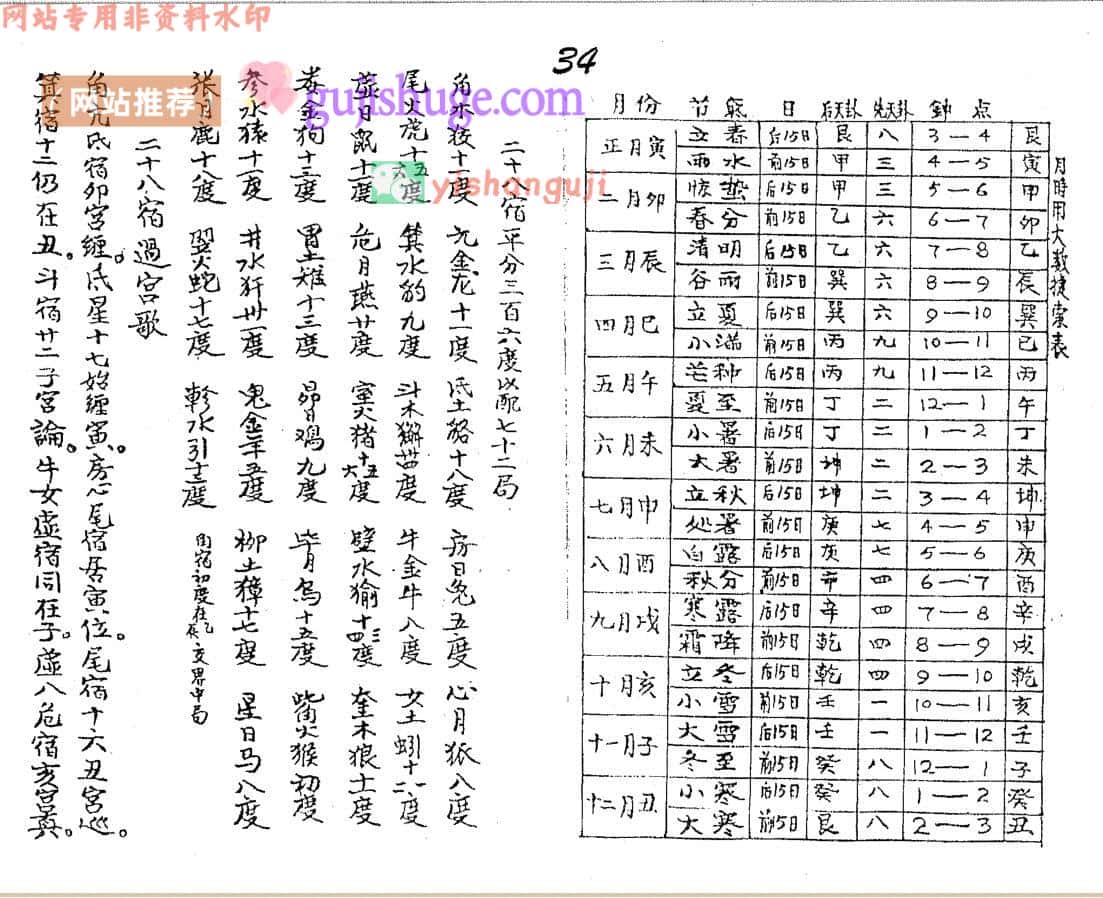 网站专用非资料水印
34
月時用大数捷索表
月份 节氣 日 后天卦 先天卦 鈡点
正月寅 立春 后15日 艮 八 3—4 艮
雨水 前15日 甲 三 4—5 寅
二月卯 惊蛰 后15日 甲 三 5—6 甲
春分 前15日 乙 六 6—7 卯
三月辰 清明 后15日 乙 六 7—8 乙
谷雨 前15日 巽 六 8—9 辰
四月巳 立夏 后15日 巽 六 9—10 巽
小满 前15日 丙 九 10—11 巳
五月午 芒种 后15日 丙 九 11—12 丙
夏至 前15日 丁 二 12—1 午
六月未 小暑 后15日 丁 二 1—2 丁
大暑 前15日 坤 二 2—3 未
七月申 立秋 后15日 坤 二 3—4 坤
处暑 前15日 庚 七 4—5 申
八月酉 白露 后15日 庚 七 5—6 庚
秋分 前15日 辛 四 6—7 酉
九月戌 寒露 后15日 辛 四 7—8 辛
霜降 前15日 乾 四 8—9 戌
十月亥 立冬 后15日 乾 四 9—10 乾
小雪 前15日 壬 一 10—11 亥
十一月子 大雪 后15日 壬 一 11—12 壬
冬至 前15日 癸 八 12—1 子
十二月丑 小寒 后15日 癸 八 1—2 癸
大寒 前15日 艮 八 2—3 丑
二十八宿平分三百六度以配七十二局
角木狡十度 亢金龙十一度 氐土貉十八度 房日兔五度 心月狐八度
尾火虎十五六度 箕水豹九度 斗木獬廿四度 牛金牛八度 女土蝠十一度
虚日鼠十度 危月燕廿度 室火猪十五六度 壁水狳十三四度 奎木狼十度
娄金狗十三度 胃土雉十三度 昴日鸡九度 毕月乌十五度 觜火猴初度
参水猿十一度 井水犴卅一度 鬼金羊五度 柳土獐十七度 星日马八度
张月鹿十八度 翌火蛇十七度 轸水引十三度 角宿初度在辰乙交界中局
二十八宿過宫歌
角亢氐宿卯宫缠。氐星十七始缠寅。房心尾宿居寅位。尾宿十六丑宫巡。
箕宿十二仍在丑。斗宿廿二子宫論。牛女虚宿同在子。虚八危宿亥宫真。
网站推荐
gujishuge.com
yishanguji